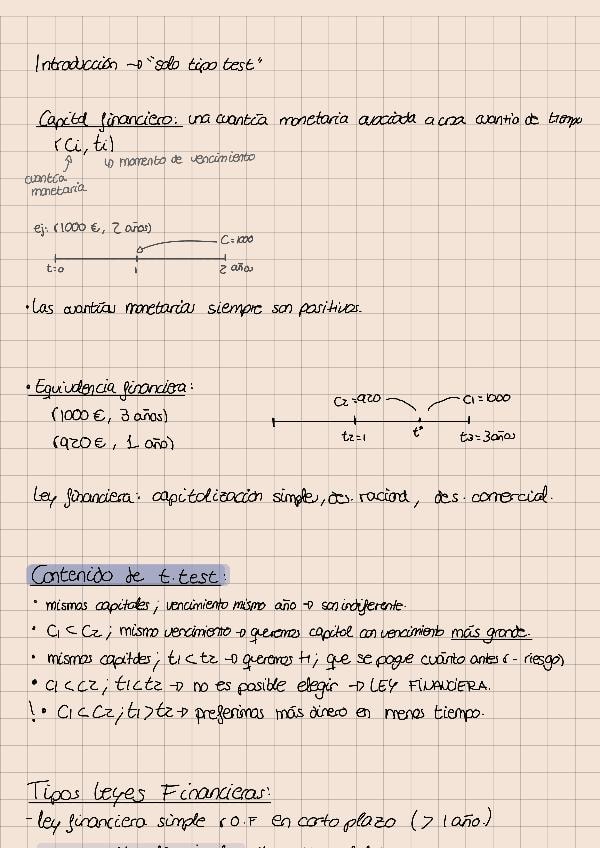 Introducción → "solo tipo test"
Capital financiero: una cuantía monetaria asociada a una cuantía de tiempo
(Ci, ti)
↳ momento de vencimiento
cuantía
monetaria
ej: (1000 €, 2 años)
C=1000
t=0 1 2 años
• Las cuantías monetarias siempre son positivas.
• Equivalencia financiera:
C2=920 C1=1000
(1000 €, 3 años)
(920 €, 1 año)
t2=1 t* t3=3años
Ley financiera: capitalización simple, des. racional, des. comercial.
Contenido de t.test:
• mismos capitales; vencimiento mismo año → son indiferente.
• C1 < C2; mismo vencimiento → queremos capital con vencimiento más grande.
• mismos capitales; t1 < t2 → queremos t1; que se pague cuánto antes (- riesgo)
• C1 < C2; t1 < t2 → no es posible elegir → LEY FINANCIERA.
! • C1 < C2; t1 > t2 → preferimos más dinero en menos tiempo.
Tipos Leyes Financieras:
- ley financiera simple (O.F en corto plazo (> 1 año.)